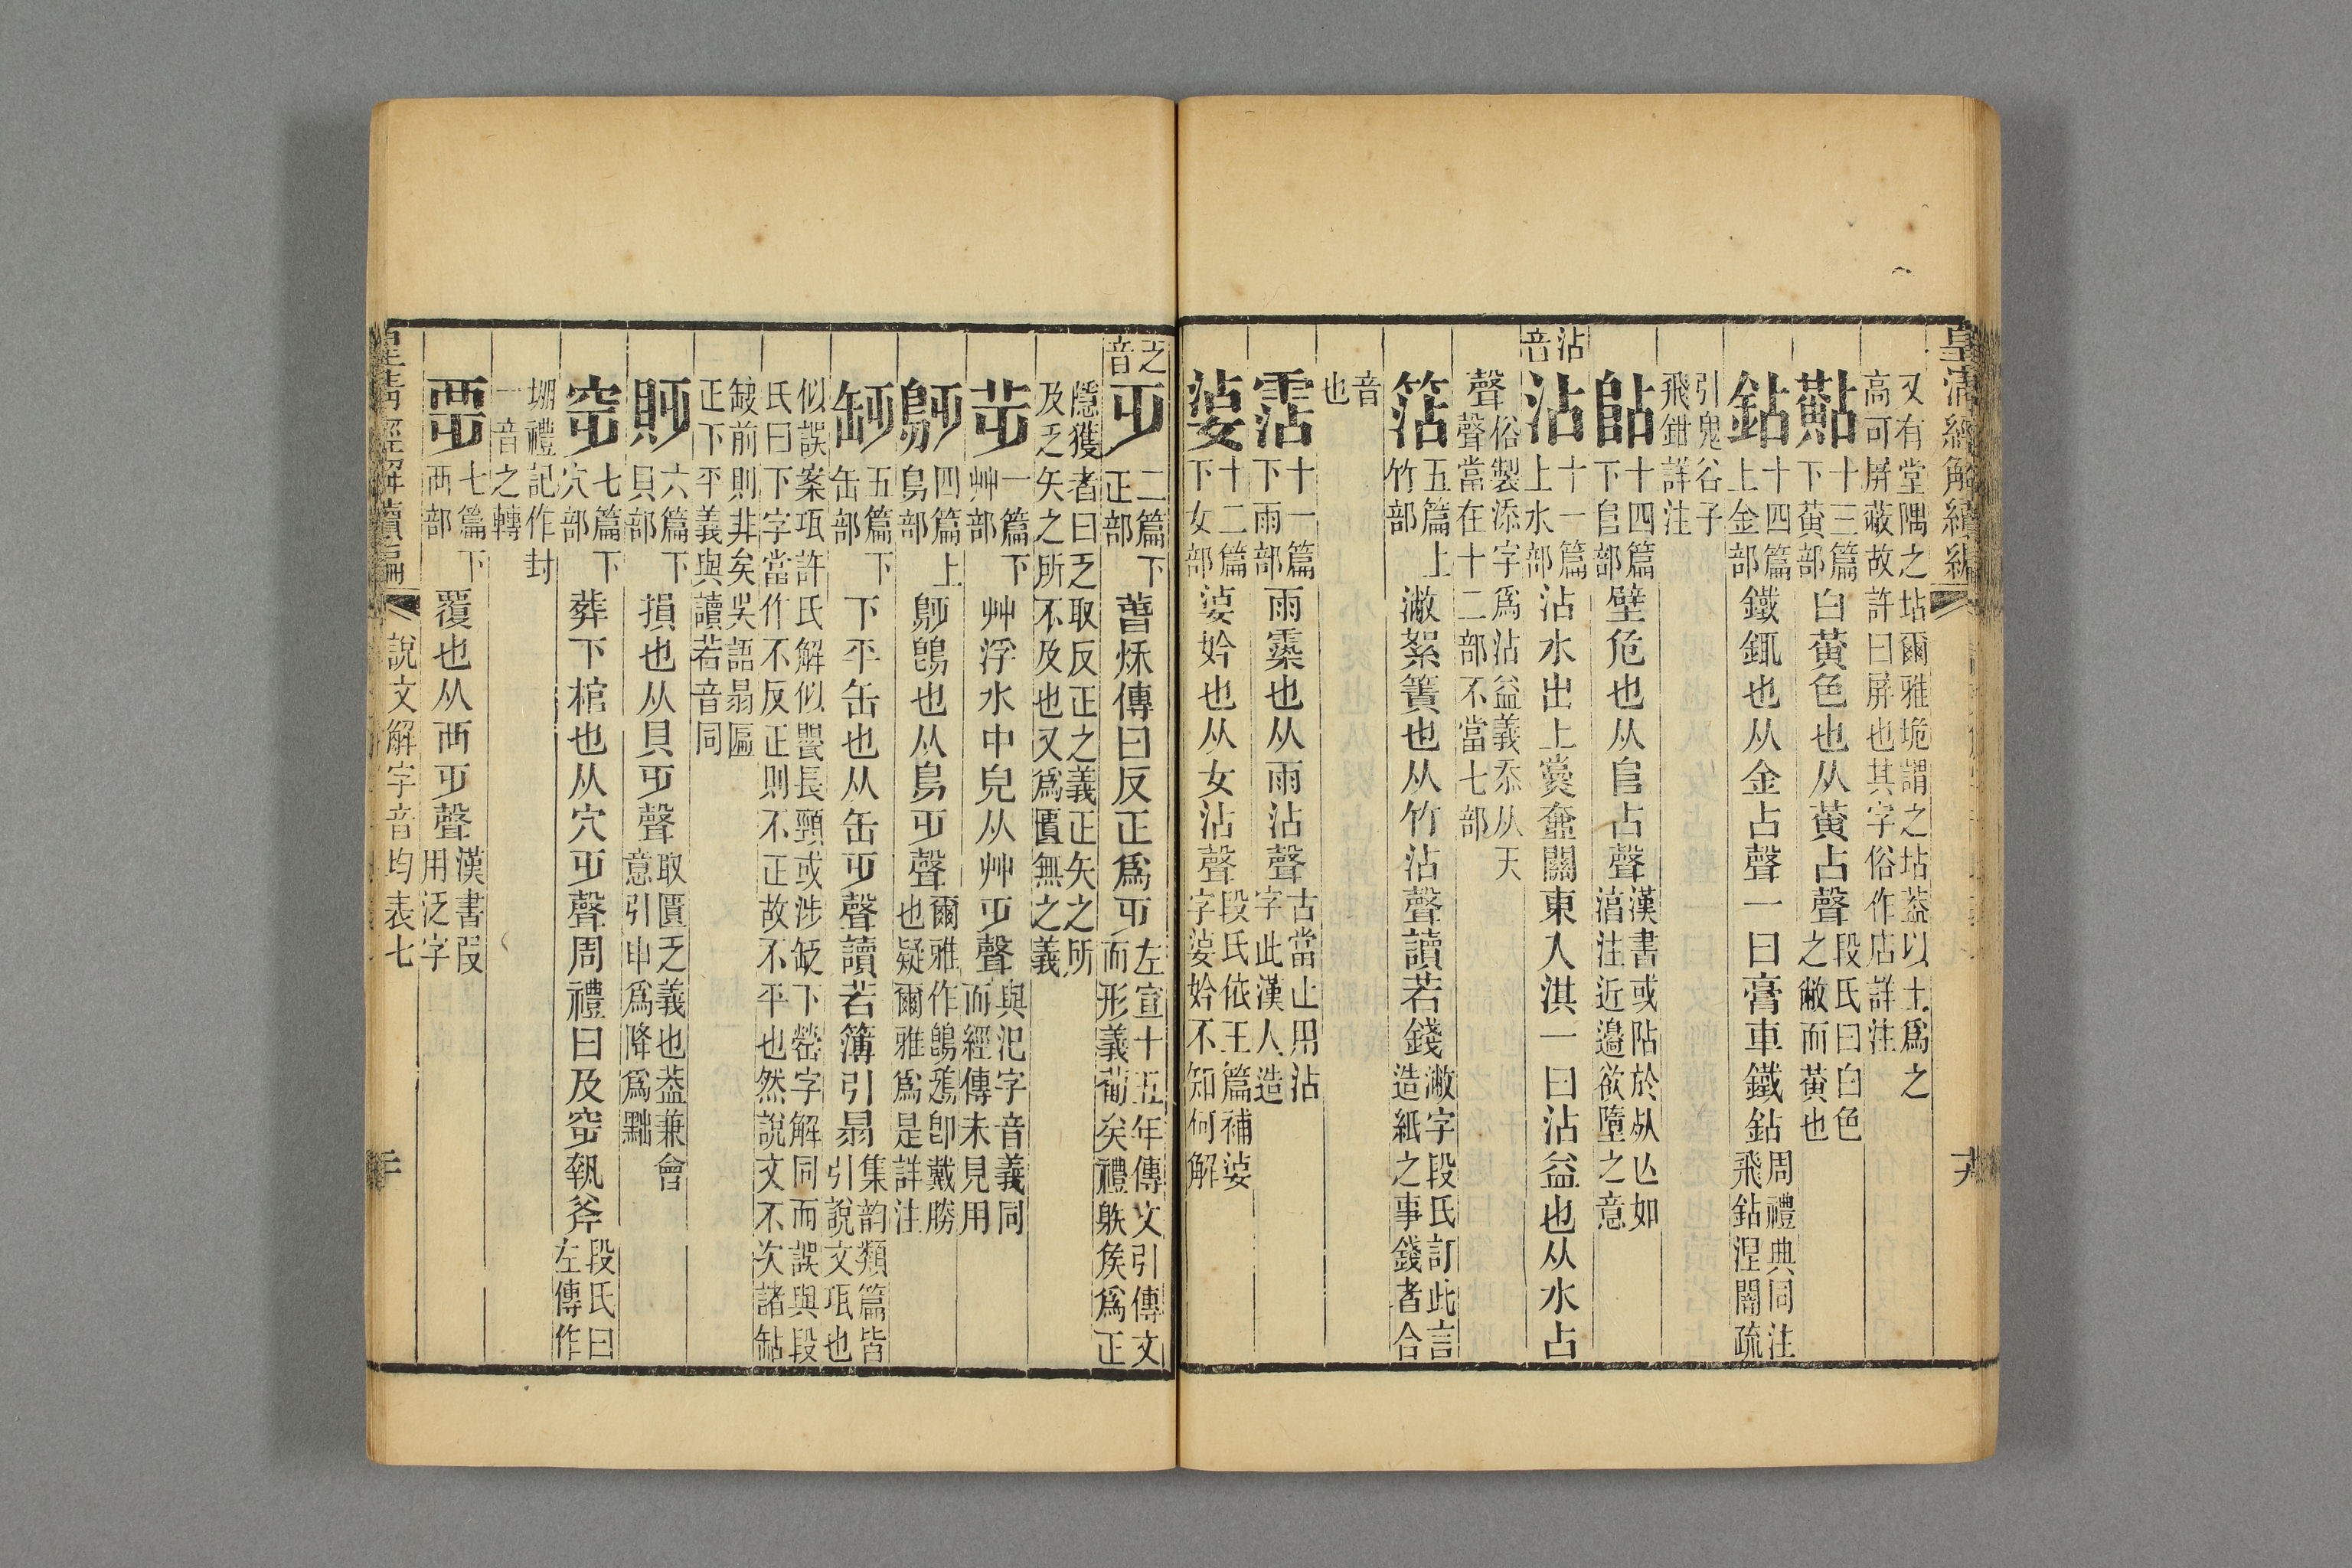 皇淸經解續編
又有堂隅之坫爾雅垝謂之坫葢以土爲之
高可屏蔽故許曰屏也其字俗作店詳注
黇十三篇下黃部白黃色也从黃占聲段氏曰白色之敝而黃也
鉆十四篇上金部鐵鉏也从金占聲一曰膏車鐵鉆周禮典同注飛鉆涅闇疏
引鬼谷子
飛鉗詳注
阽十四篇下𨸏部壁危也从𨸏占聲漢書或阽於死亡如湻注近邉欲墮之意
沾音
沾十一篇上水部沾水出上黨壺關東入淇一曰沾益也从水占
聲俗製添字爲沾益義忝从天聲當在十二部不當七部
𥬲五篇上竹部澉絮簀也从竹沾聲讀若錢澉字段氏訂此言造紙之事錢者合
音
也
霑十一篇下雨部雨䨙也从雨沾聲古當止用沾字此漢人造
婆十二篇下女部婆妗也从女沾聲段氏依玉篇補婆字婆妗不知何解
乏音
𠂜二篇下正部春秋傳曰反正爲𠂜左宣十五年傳文引傳文而形義葡矣禮躲矦爲正
隱獲者曰乏取反正之義正矢之所
及乏矢之所不及也又爲匱無之義
芝一篇下艸部艸浮水中皃从艸𠂜聲與汜字音義同而經傳未見用
鴔四篇上鳥部鴔鵖也从鳥𠂜聲爾雅作鵖鴔卽戴勝也疑爾雅爲是詳注
䍇五篇下缶部下平缶也从缶𠂜聲讀若簿引昜集韵類篇皆引說文瓨也
似誤案瓨許氏解似罌長頸或涉缺下罃字解同而誤與段
氏曰下字當作不反正則不正故不平也然說文不次諸䍄
缺前則非矣吳語昜匾
正下平義與讀若音同
貶六篇下貝部損也从貝𠂜聲取匱乏義也葢兼會意引申爲降爲黜
窆七篇下穴部葬下棺也从穴𠂜聲周禮曰及窆執斧段氏曰左傳作
堋禮記作封
一音之轉
覂七篇下襾部覆也从襾𠂜聲漢書叚用泛字
皇淸經解續編 說文解字音均表七